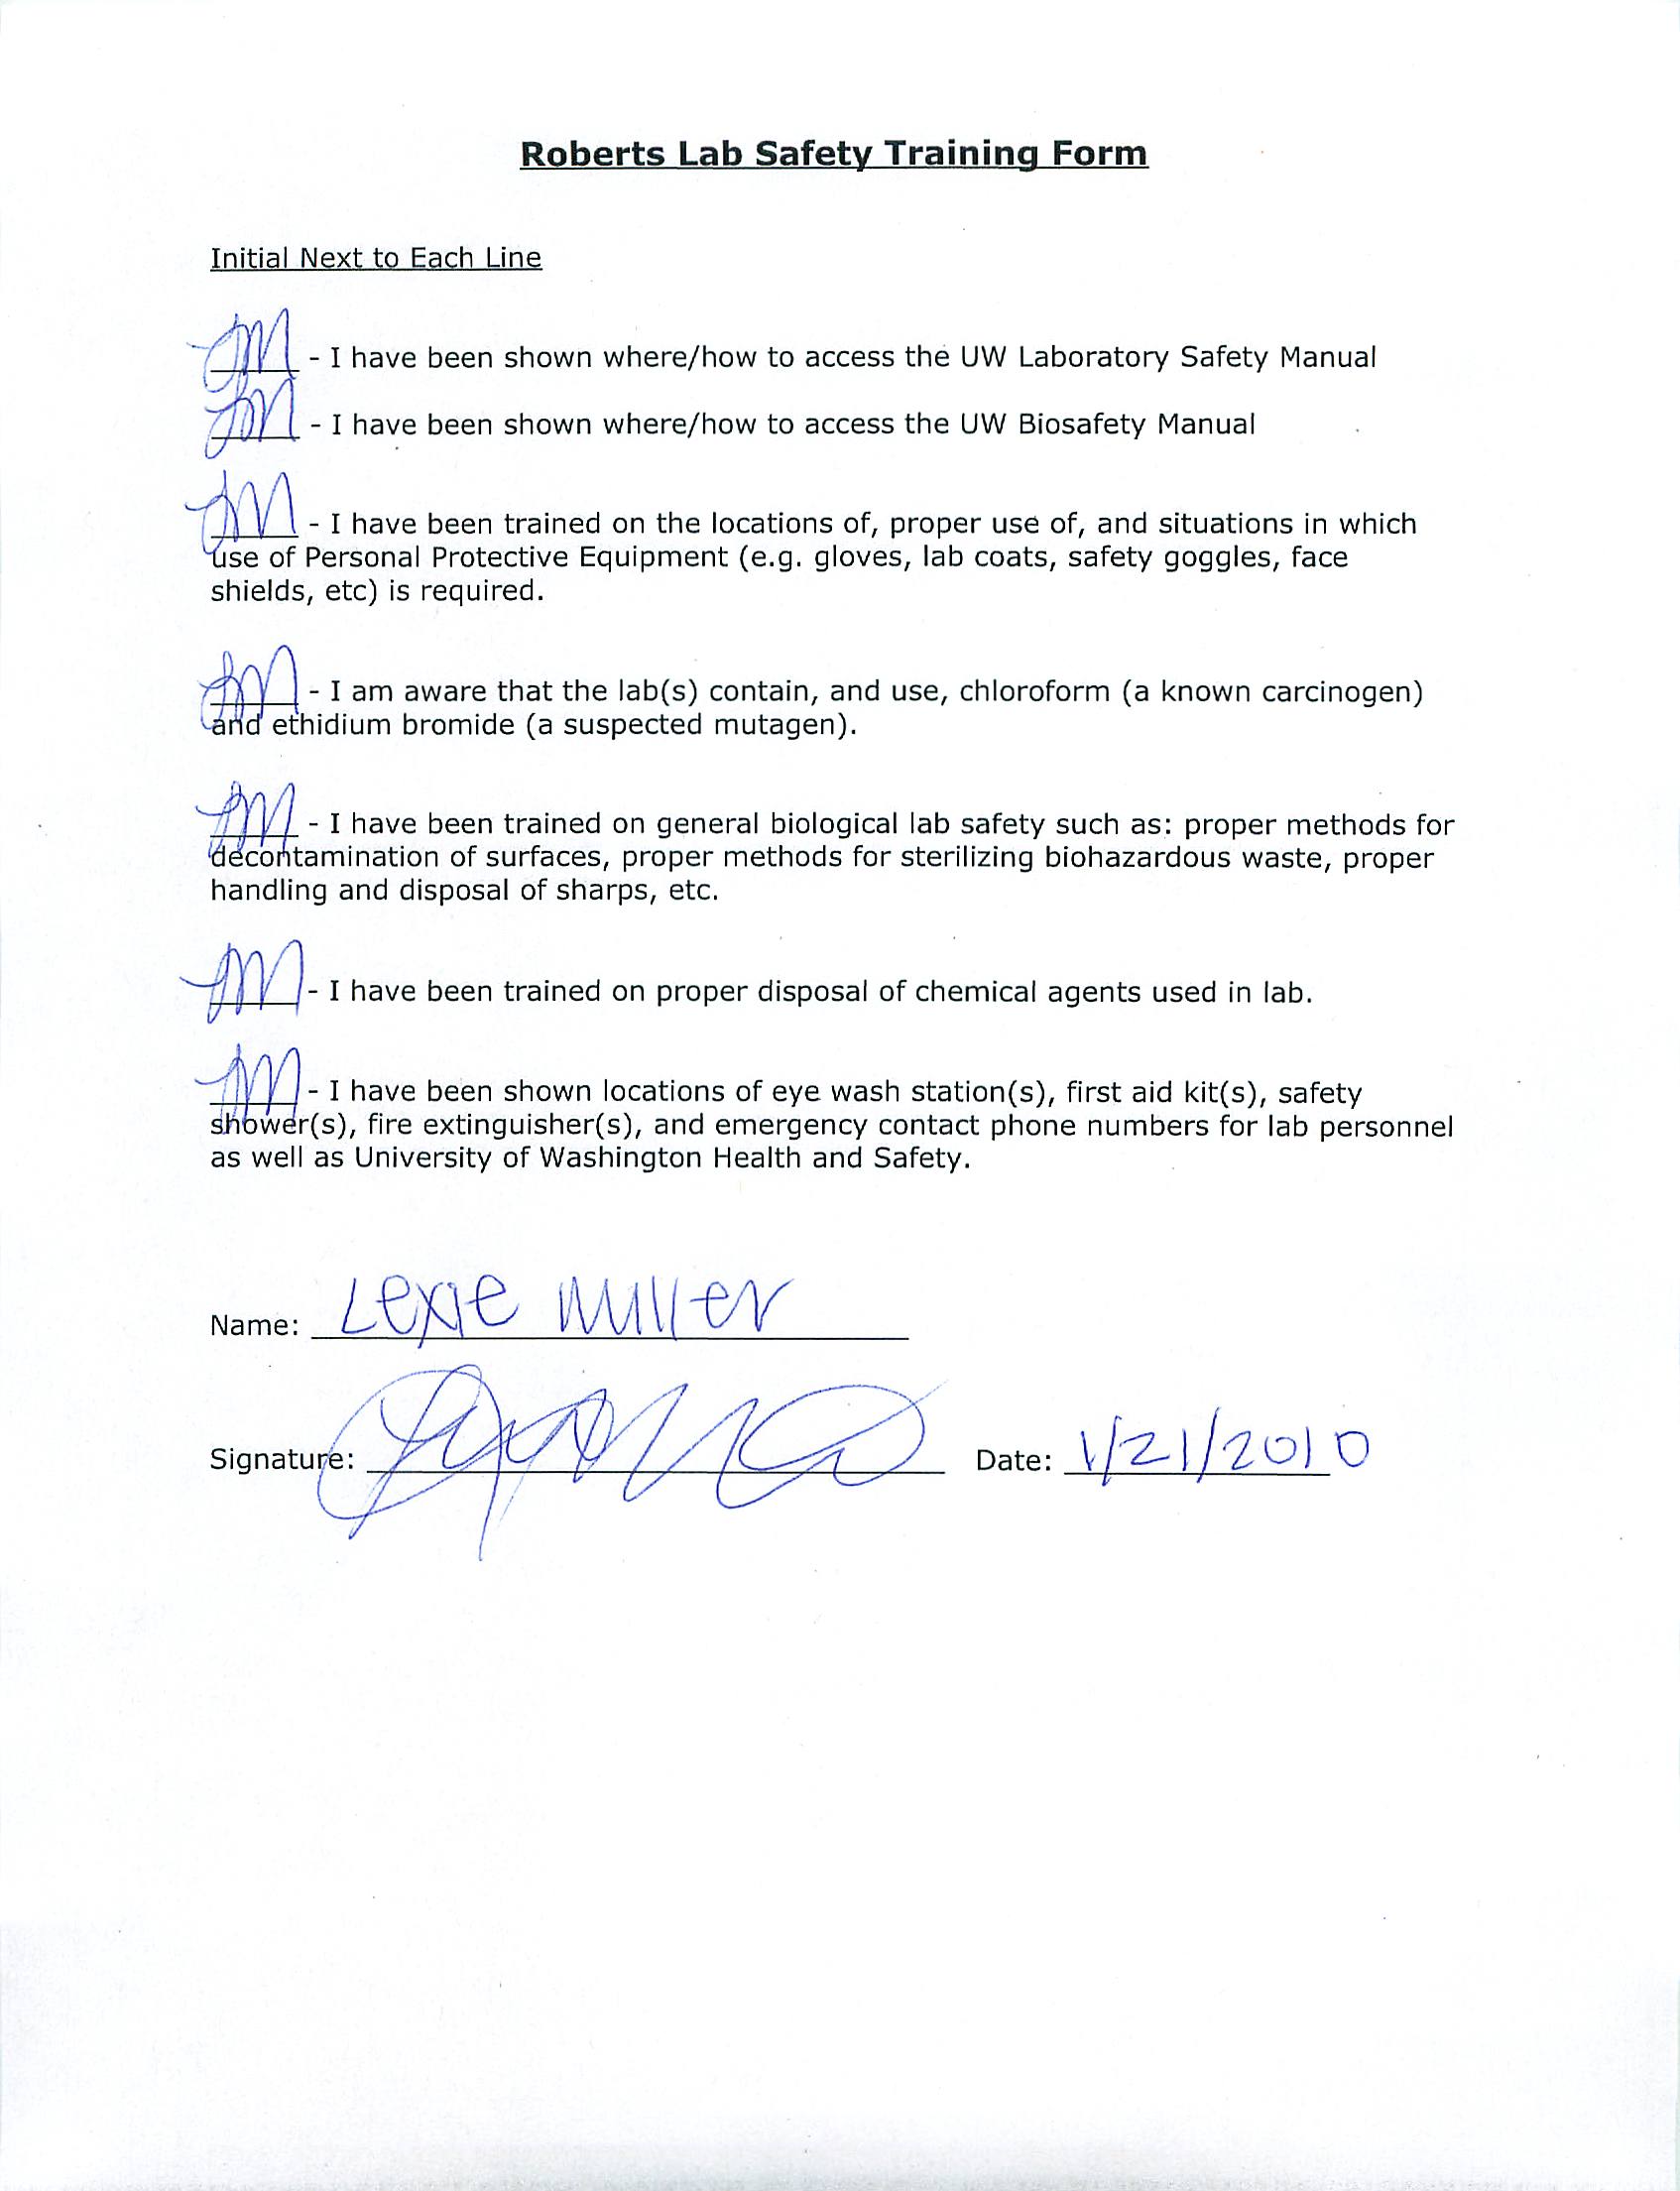 Roberts Lab Safety Training Form
Initial Next to Each Line
- I have been shown where/how to access the UW Laboratory Safety Manual
- I have been shown where/how to access the UW Biosafety Manual
- I have been trained on the locations of, proper use of, and situations in which
use of Personal Protective Equipment (e.g. gloves, lab coats, safety goggles, face
shields, etc) is required.
- I am aware that the lab(s) contain, and use, chloroform (a known carcinogen)
and ethidium bromide (a suspected mutagen).
- I have been trained on general biological lab safety such as: proper methods for
decontamination of surfaces, proper methods for sterilizing biohazardous waste, proper
handling and disposal of sharps, etc.
- I have been trained on proper disposal of chemical agents used in lab.
- I have been shown locations of eye wash station(s), first aid kit(s), safety
shower(s), fire extinguisher(s), and emergency contact phone numbers for lab personnel
as well as University of Washington Health and Safety.
Name: Lexie Miller
Signature: Date: 1/21/2010